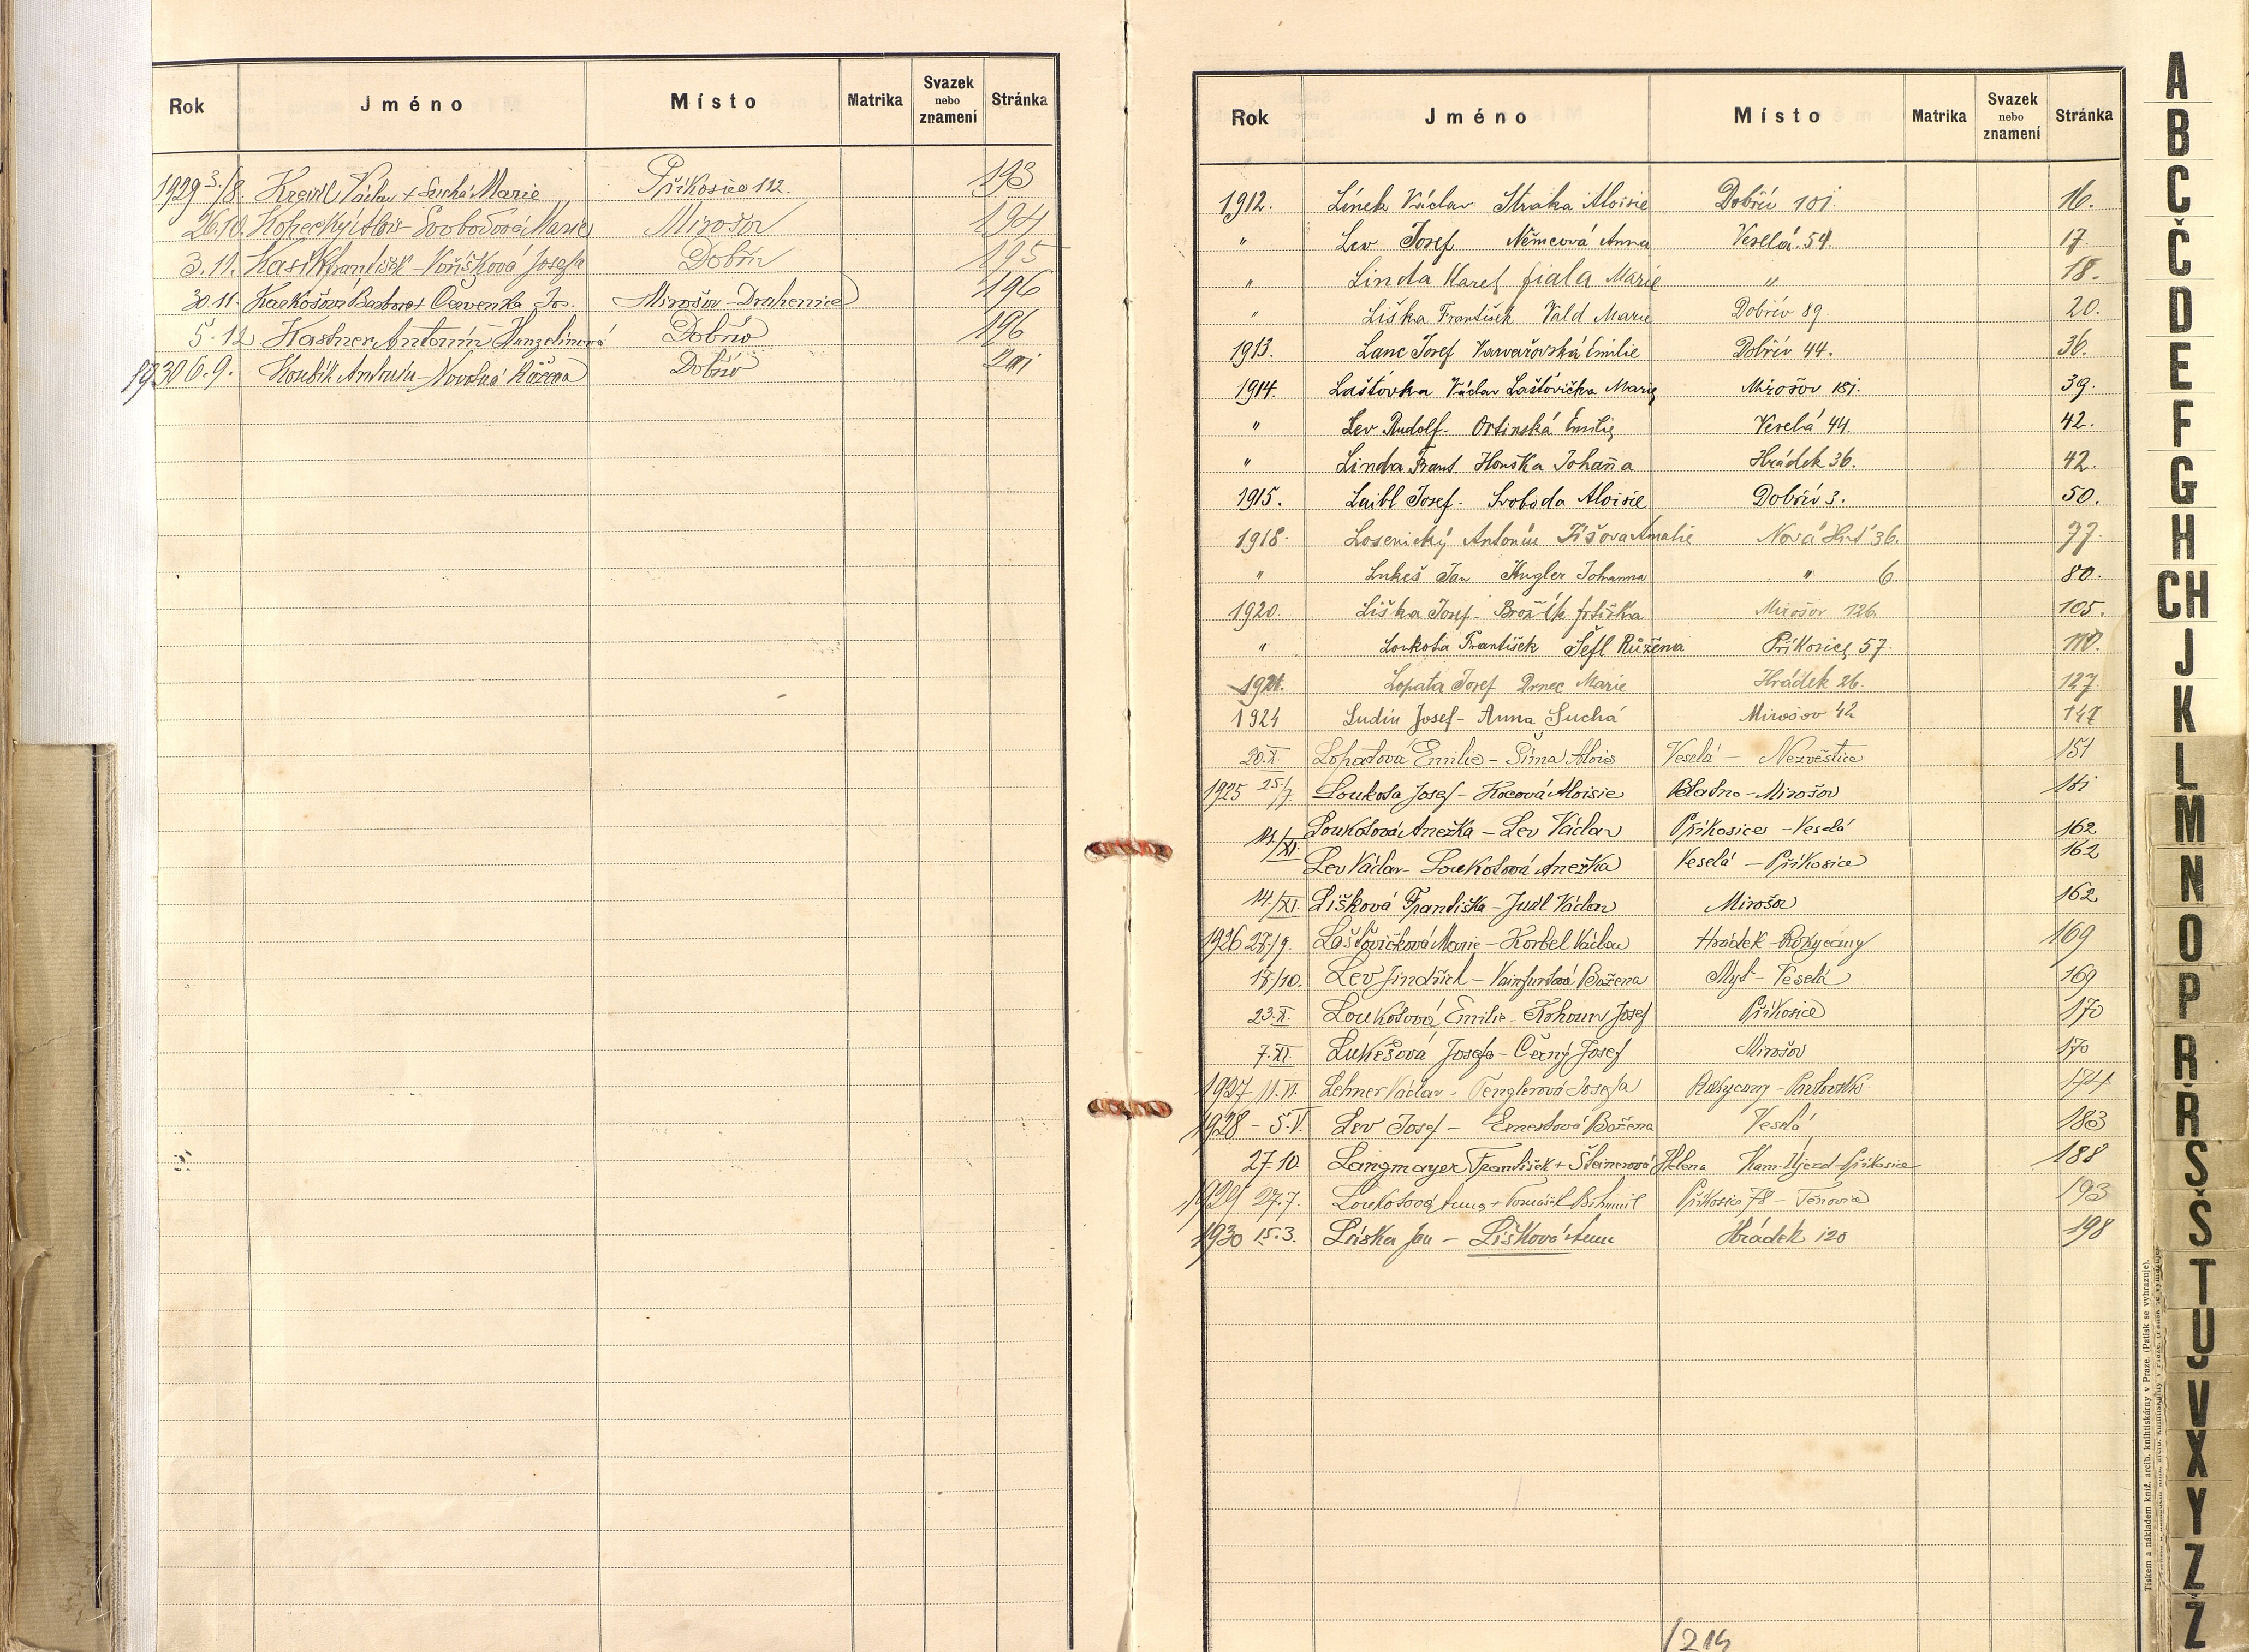 Rok Jméno Místo Matrika Svazek nebo znamení Stránka
1929 3./8. Václav + Suchá Marie Příkosice 112. 193
26.10. Kohecký Alois - Svobodová Marie Mirošov 194
3.11. Kasík František - Voříšková Josefa Dobřív 195
30.11. Karkošová Barbora + Červenka Jos. Mirošov - Drahenice 196
5.12 Kastner Antonín - Dobřív 196
1930 6.9. Koubík Antonín - Novotná Růžena Dobřív 201
Rok Jméno Místo Matrika Svazek nebo znamení Stránka
1912. Línek Václav Straka Aloisie Dobřív 101. 16.
" Lev Josef Němcová Anna Veselá. 54. 17.
" Linda Karel fiala Marie " 18.
" Liška František Vald Marie Dobřív 89. 20.
1913. Lanc Josef Varvařovská Emilie Dobřív 44. 36.
1914. Laštovka Václav Laštovička Marie Mirošov 181. 39.
" Lev Rudolf. Ortinská Emilie Veselá 44. 42.
" Linda Frant. Houška Johana Hrádek 36. 42.
1915. Laibl Josef. Svoboda Aloisie Dobřív 3. 50.
1918. Losenický Antonín Fišova Amalie Nová Huť 36. 77.
" Lukeš Jan Kugler Johanna " 6. 80.
1920. Liška Josef - Brožík frtiška Mirošov 126. 105.
" Loukota František Šefl Růžena Příkosice 57. 110.
1921. Lopata Josef Drnec Marie Hrádek 26. 127
1924 Ludín Josef - Anna Suchá Mirošov 42 147
20.X. Lopatová Emilie - Šíma Alois Veselá - Nezvěstice 151
1925 25/7. Loukota Josef - Kocová Aloisie Blatno - Mirošov 161
14./XI. Loukotová Anežka - Lev Václav Příkosice - Veselá 162
Lev Václav - Loukotová Anežka Veselá - Příkosice 162
14./XI. Lišková Františka - Václav Mirošov 162
1926 27./9. Laštovičková Marie - Korbel Václav Hrádek - Rokycany 169
17/10. Lev Jindřich - Vainfurtová Božena Mýt - Veselá 169
23.X. Loukotová Emilie - Kohoun Josef Příkosice 170
7.XI. Lukešová Josefa - Černý Josef Mirošov 170
1927 11.VI. Lehner Václav - Tenglerová Josefa Rokycany - 174
1928 - 5.V. Lev Josef - Ernestová Božena Veselá 183
27.10. Langmayer František + Šteinerová Helena Kam. Újezd - Příkosice 188
1929 27.7. Loukotová Anna + Bohumil Příkosice 78 - Těnovice 193
1930 15.3. Láska Jan - Lišková Anna Hrádek 120 198
/214
A
B
C
Č
D
E
F
G
H
CH
J
K
L
M
N
O
P
R
Ř
S
Š
T
U
V
X
Y
Z
Ž
Tiskem a nákladem kniž. arcib. knihtiskárny v Praze. (Patisk se vyhrazuje).